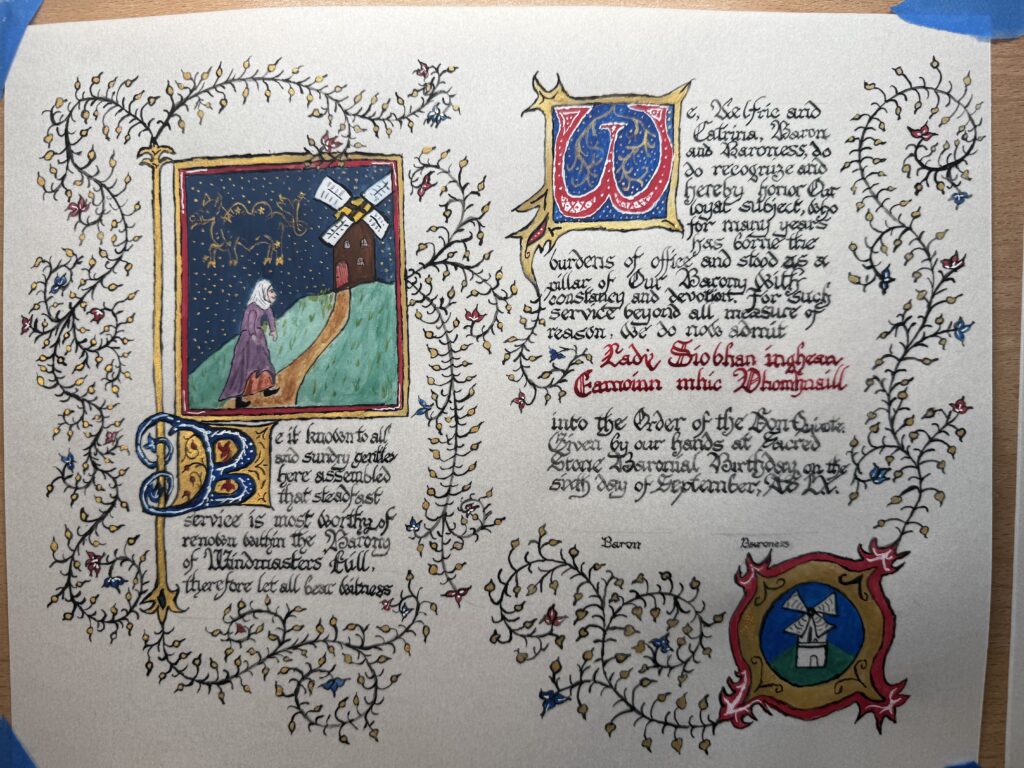 Be it known to all
and sundry gentles
here assembled
that steadfast
service is most worthy of
renown within the Barony
of Windmasters' Hill,
therefore let all bear witness
We, Aelfric and
Catrina, Baron
and Baroness, do
do recognize and
hereby honor Our
loyal subject, who
for many years
has borne the
burdens of office and stood as a
pillar of Our Barony with
constancy and devotion. For such
service beyond all measure of
reason, We do now admit
Lady Siobhan inghean
Eamoinn mhic Dhomhnaill
into the Order of the Don Quixote.
Given by our hands at Sacred
Stone Baronial Birthday on the
sixth day of September, AS LX.
Baron
Baroness